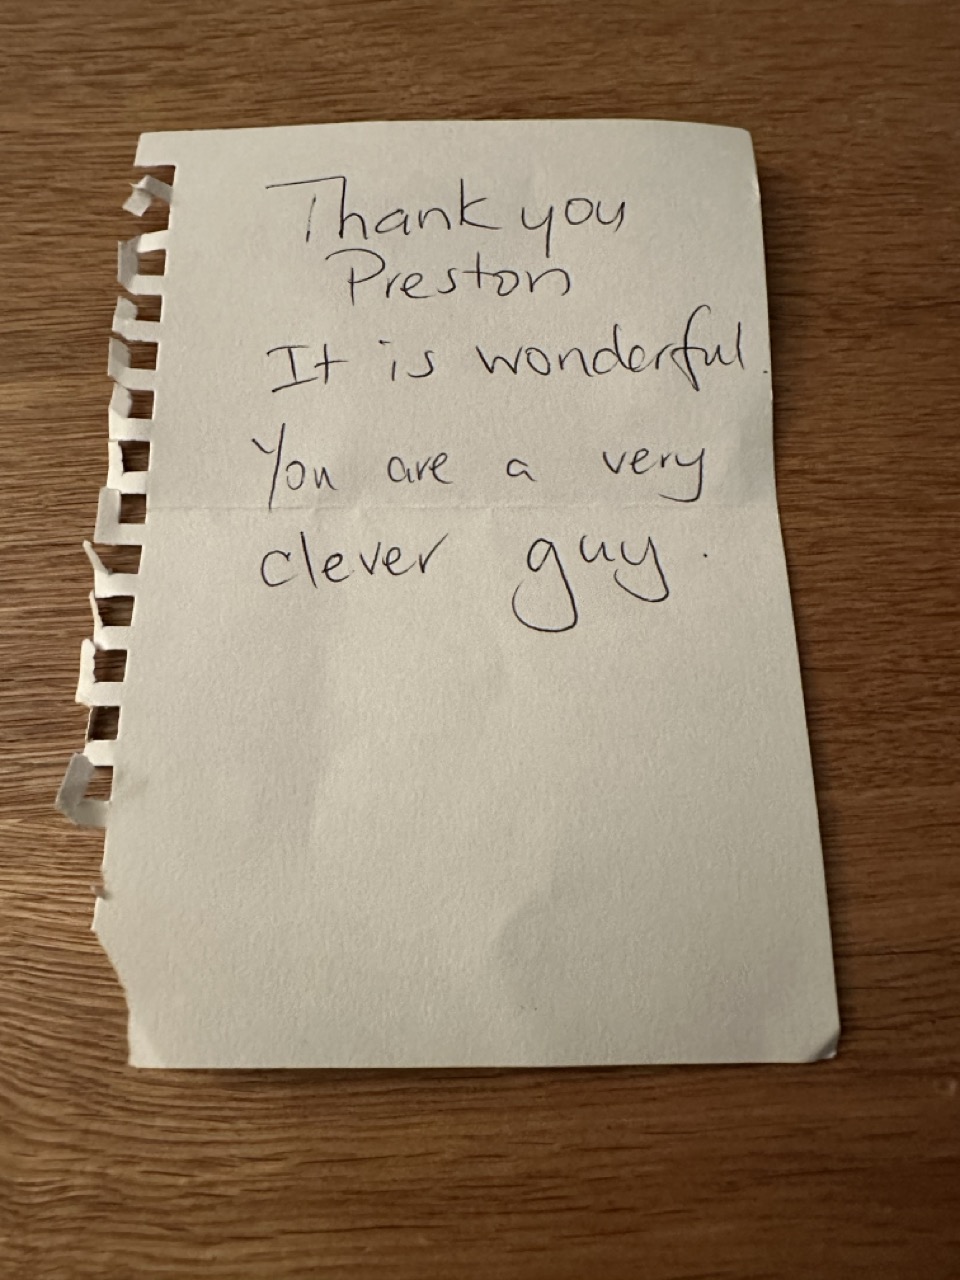 Thank you
Preston
It is wonderful.
You are a very
clever guy.